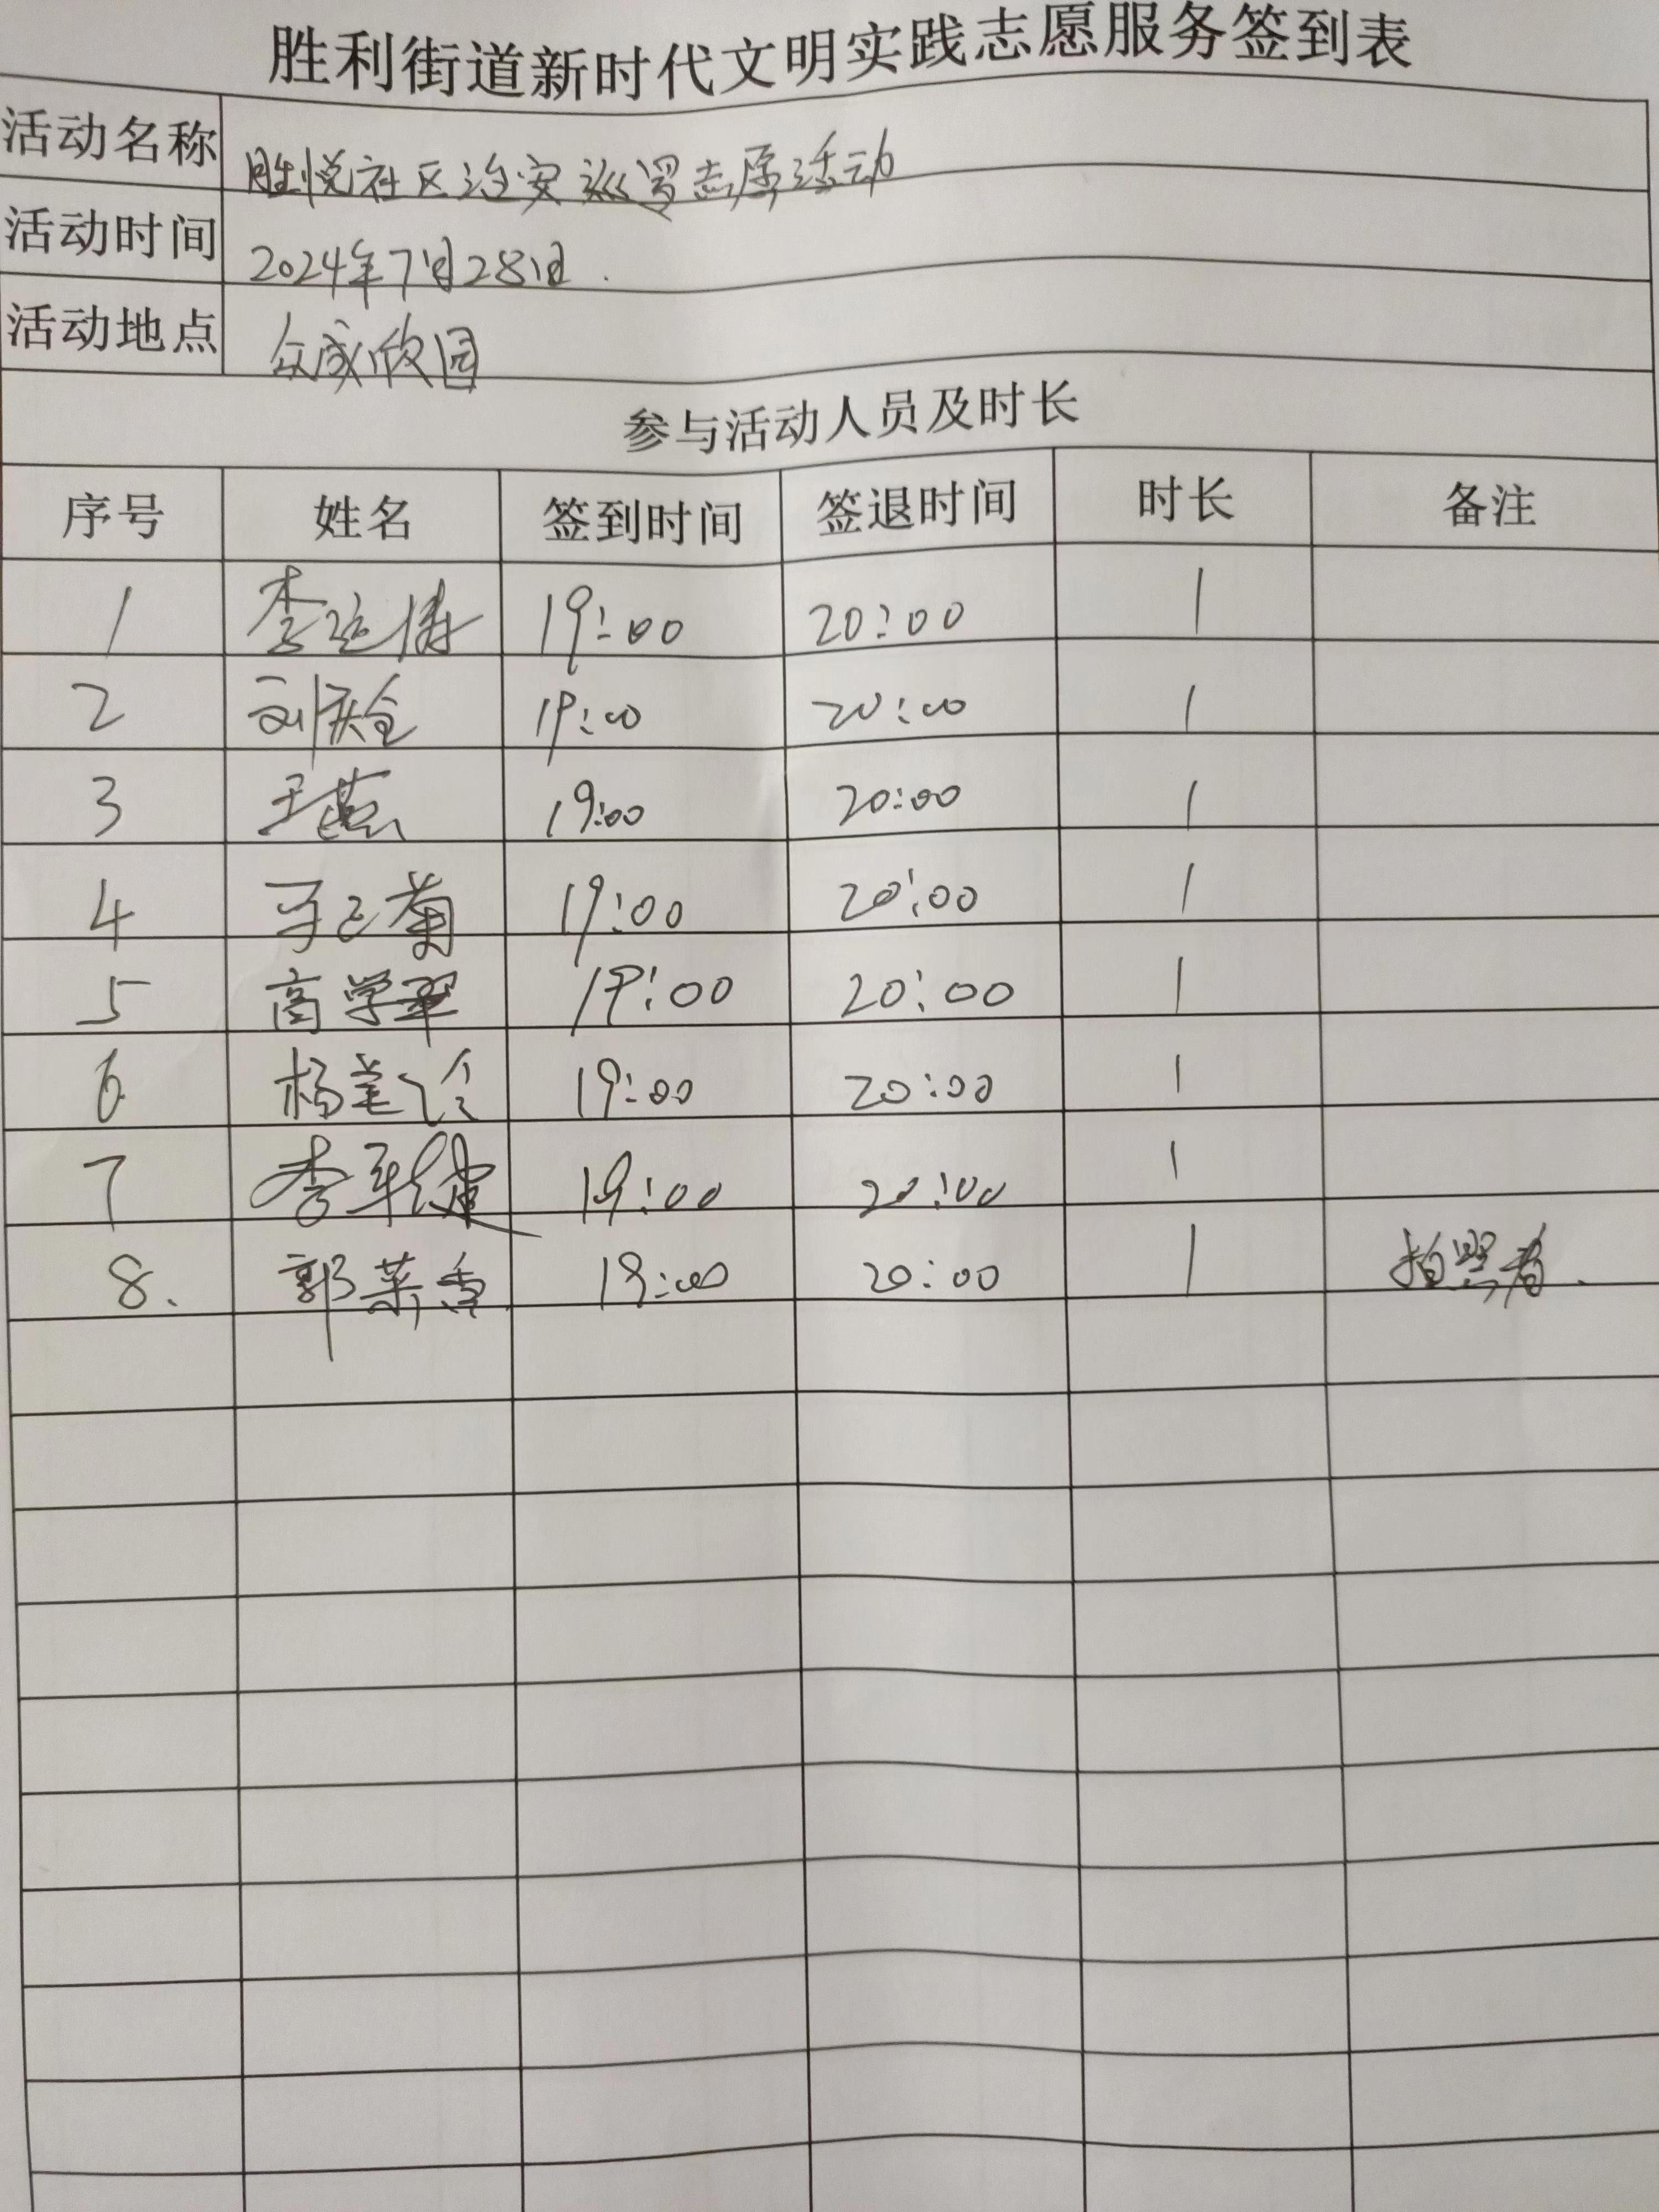 胜利街道新时代文明实践志愿服务签到表
活动名称 胜悦社区治安巡逻志愿活动
活动时间 2024年7月28日.
活动地点 众成欣园
参与活动人员及时长
序号 姓名 签到时间 签退时间 时长 备注
1 李延涛 19:00 20:00 1
2 刘庆全 19:00 20:00 1
3 王燕 19:00 20:00 1
4 菊 19:00 20:00 1
5 商学翠 19:00 20:00 1
6 杨 19:00 20:00 1
7 李军建 19:00 20:00 1
8、 郭菜香 19:00 20:00 1 拍照者.